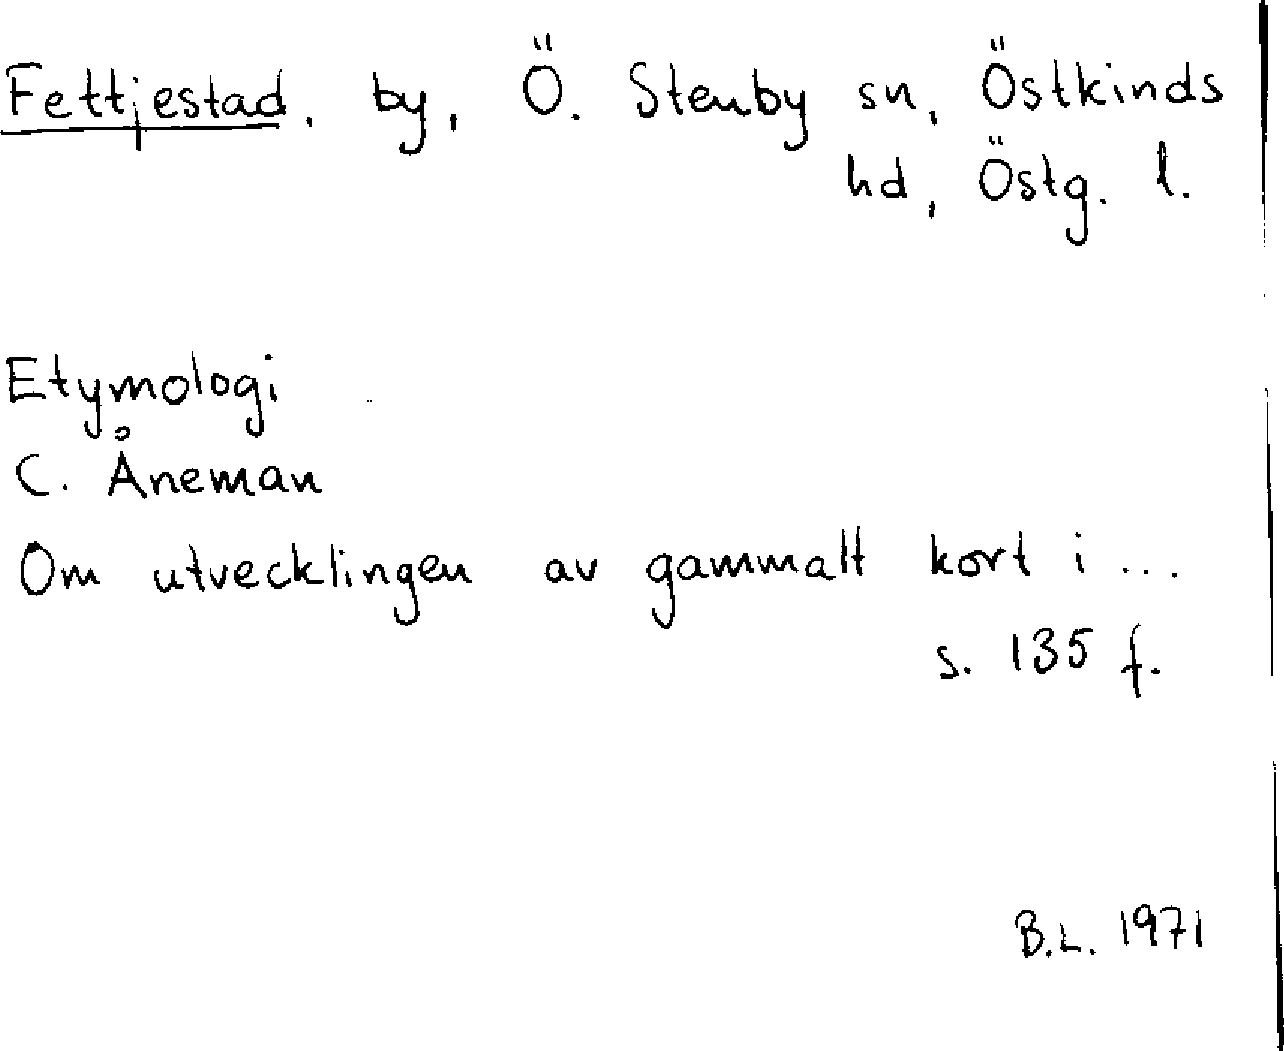 Fettjestad, by, Ö. Stenby sn, Östkinds
hd, Östg. l.
Etymologi
C. Åneman
Om utvecklingen av gammalt kort i ...
s. 135 f.
B.L. 1971